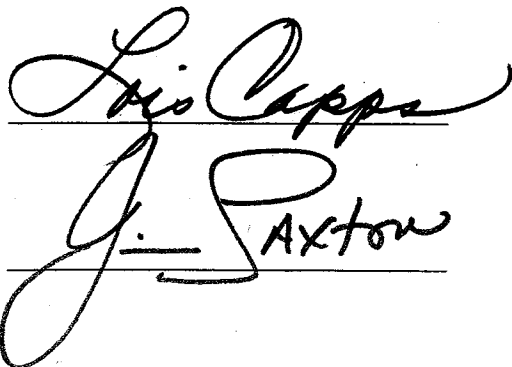 Lois Capps
Jim Saxton